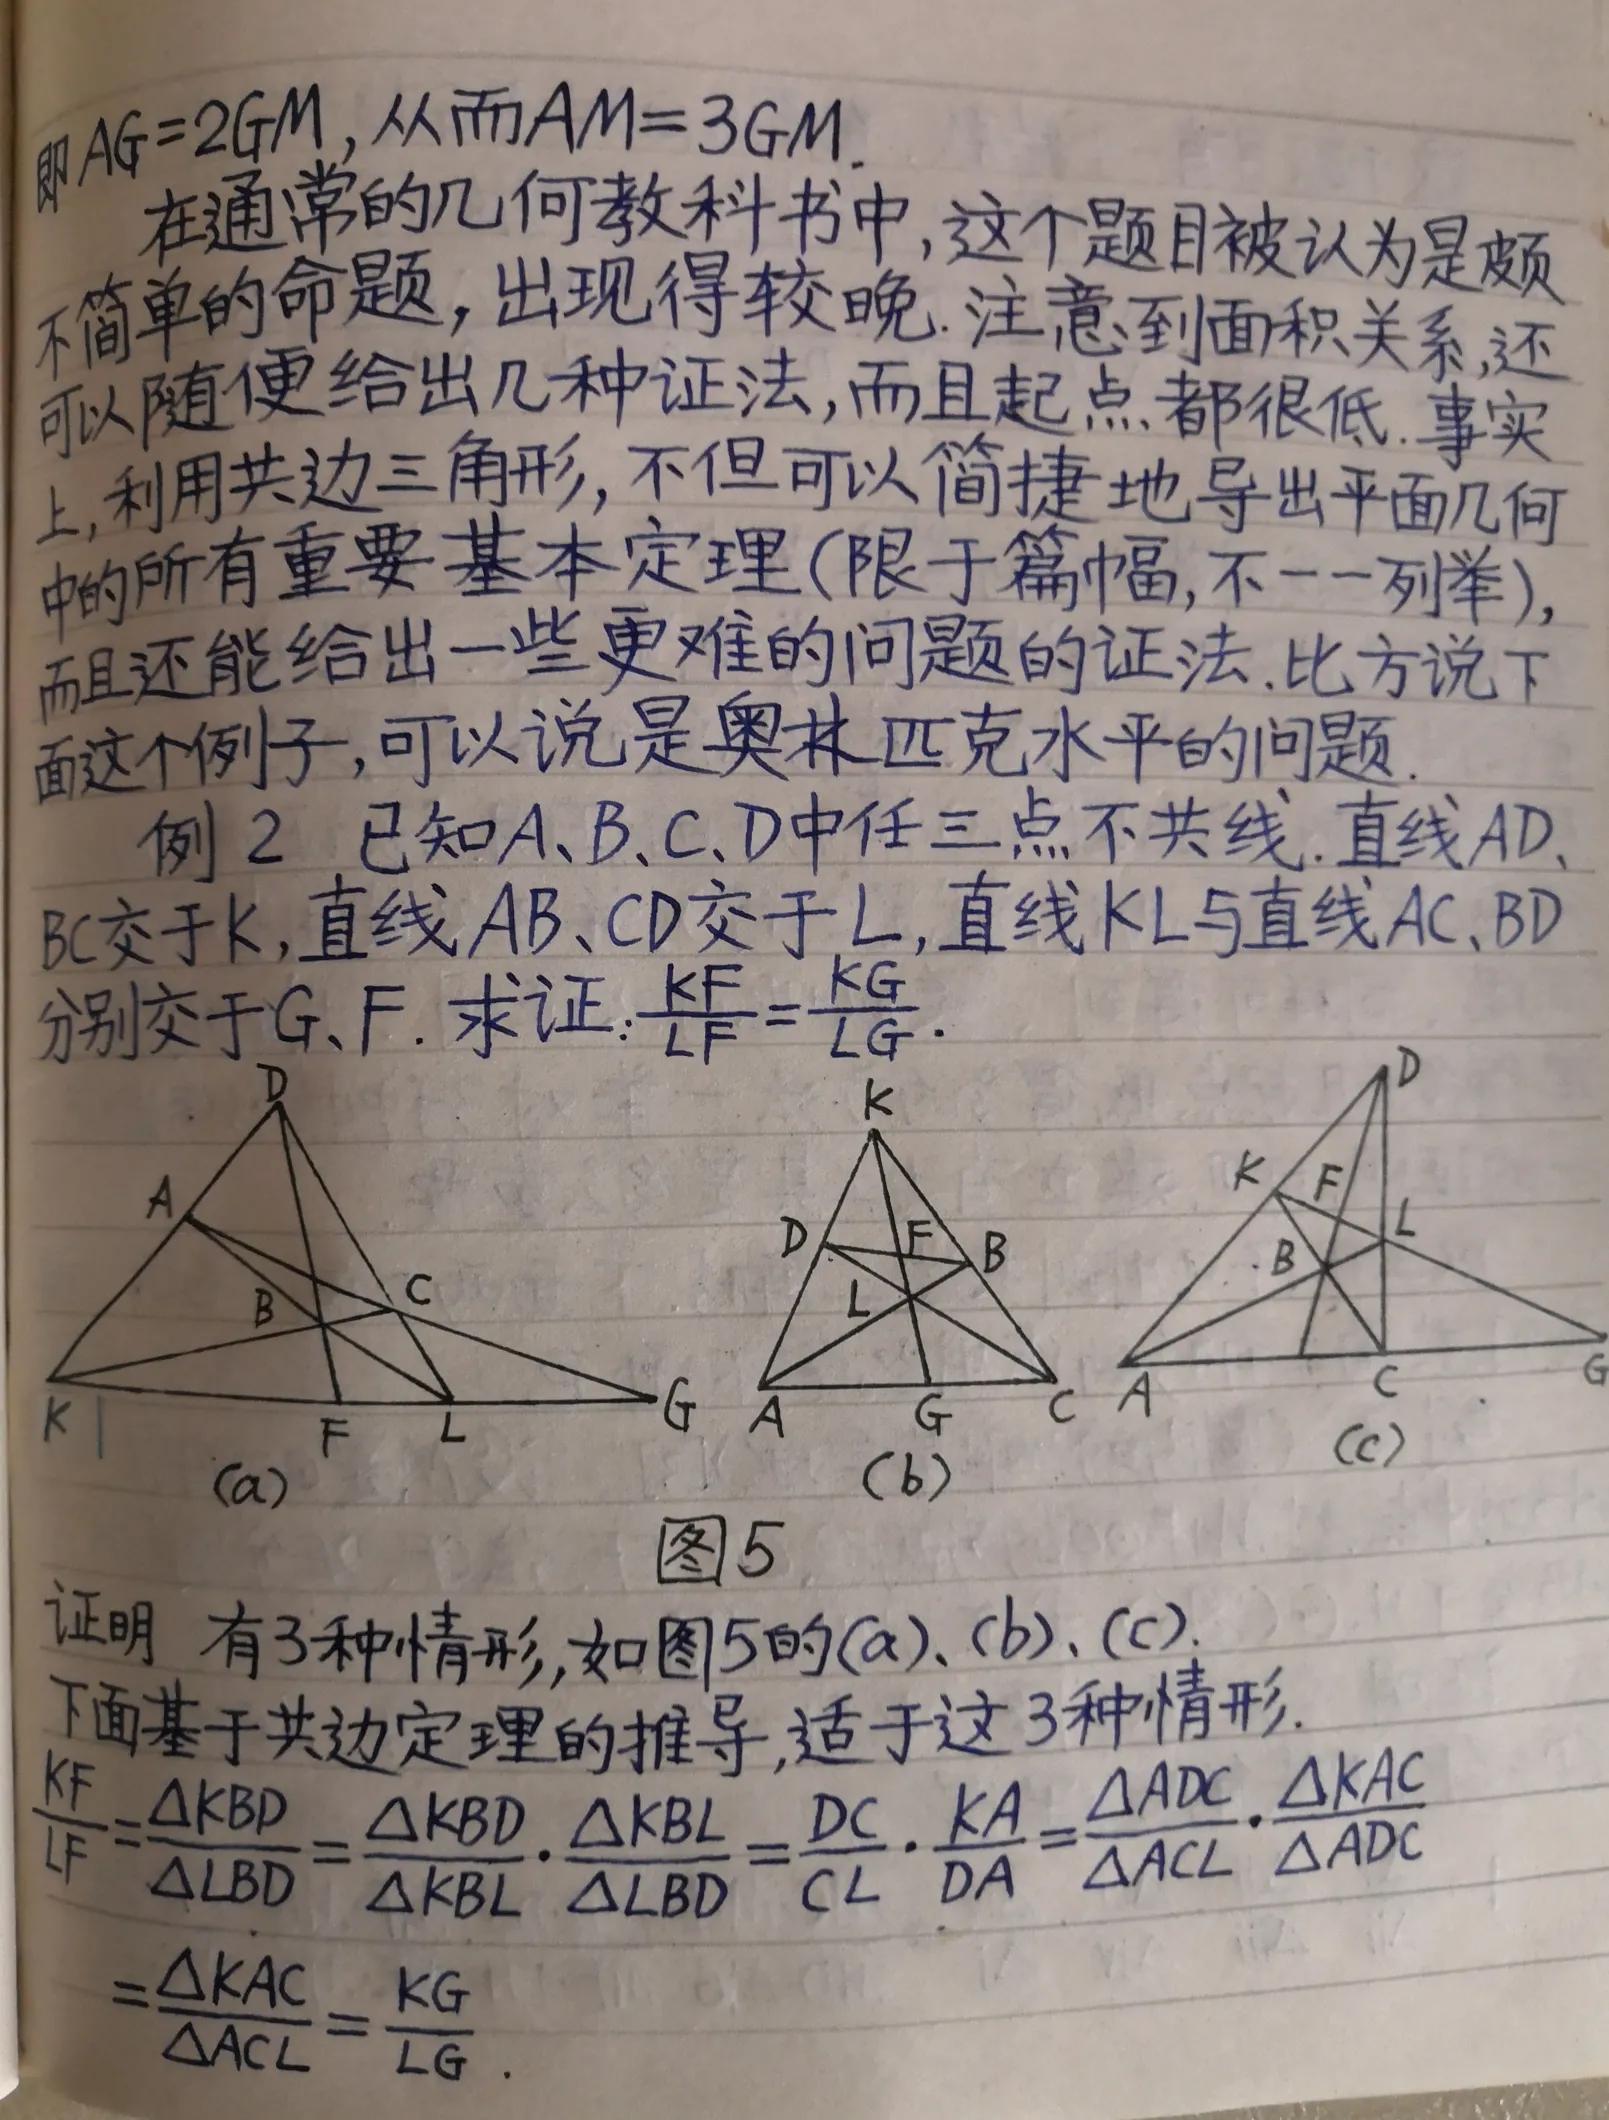 即AG=2GM,从而AM=3GM.
在通常的几何教科书中,这个题目被认为是颇
不简单的命题,出现得较晚.注意到面积关系,还
可以随便给出几种证法,而且起点都很低.事实
上,利用共边三角形,不但可以简捷地导出平面几何
中的所有重要基本定理(限于篇幅,不一一列举),
而且还能给出一些更难的问题的证法.比方说下
面这个例子,可以说是奥林匹克水平的问题.
例2 已知A、B、C、D中任三点不共线.直线AD、
BC交于K,直线AB、CD交于L,直线KL与直线AC、BD
分别交于G、F.求证:KF/LF=KG/LG.
D
A
B
C
K
F
L
G
(a)
K
D
F
B
L
A
G
C
(b)
D
K
F
L
B
A
C
G
(c)
图5
证明 有3种情形,如图5的(a)、(b)、(c).
下面基于共边定理的推导,适于这3种情形.
KF/LF=△KBD/△LBD=△KBD/△KBL·△KBL/△LBD=DC/CL·KA/DA=△ADC/△ACL·△KAC/△ADC
=△KAC/△ACL=KG/LG.